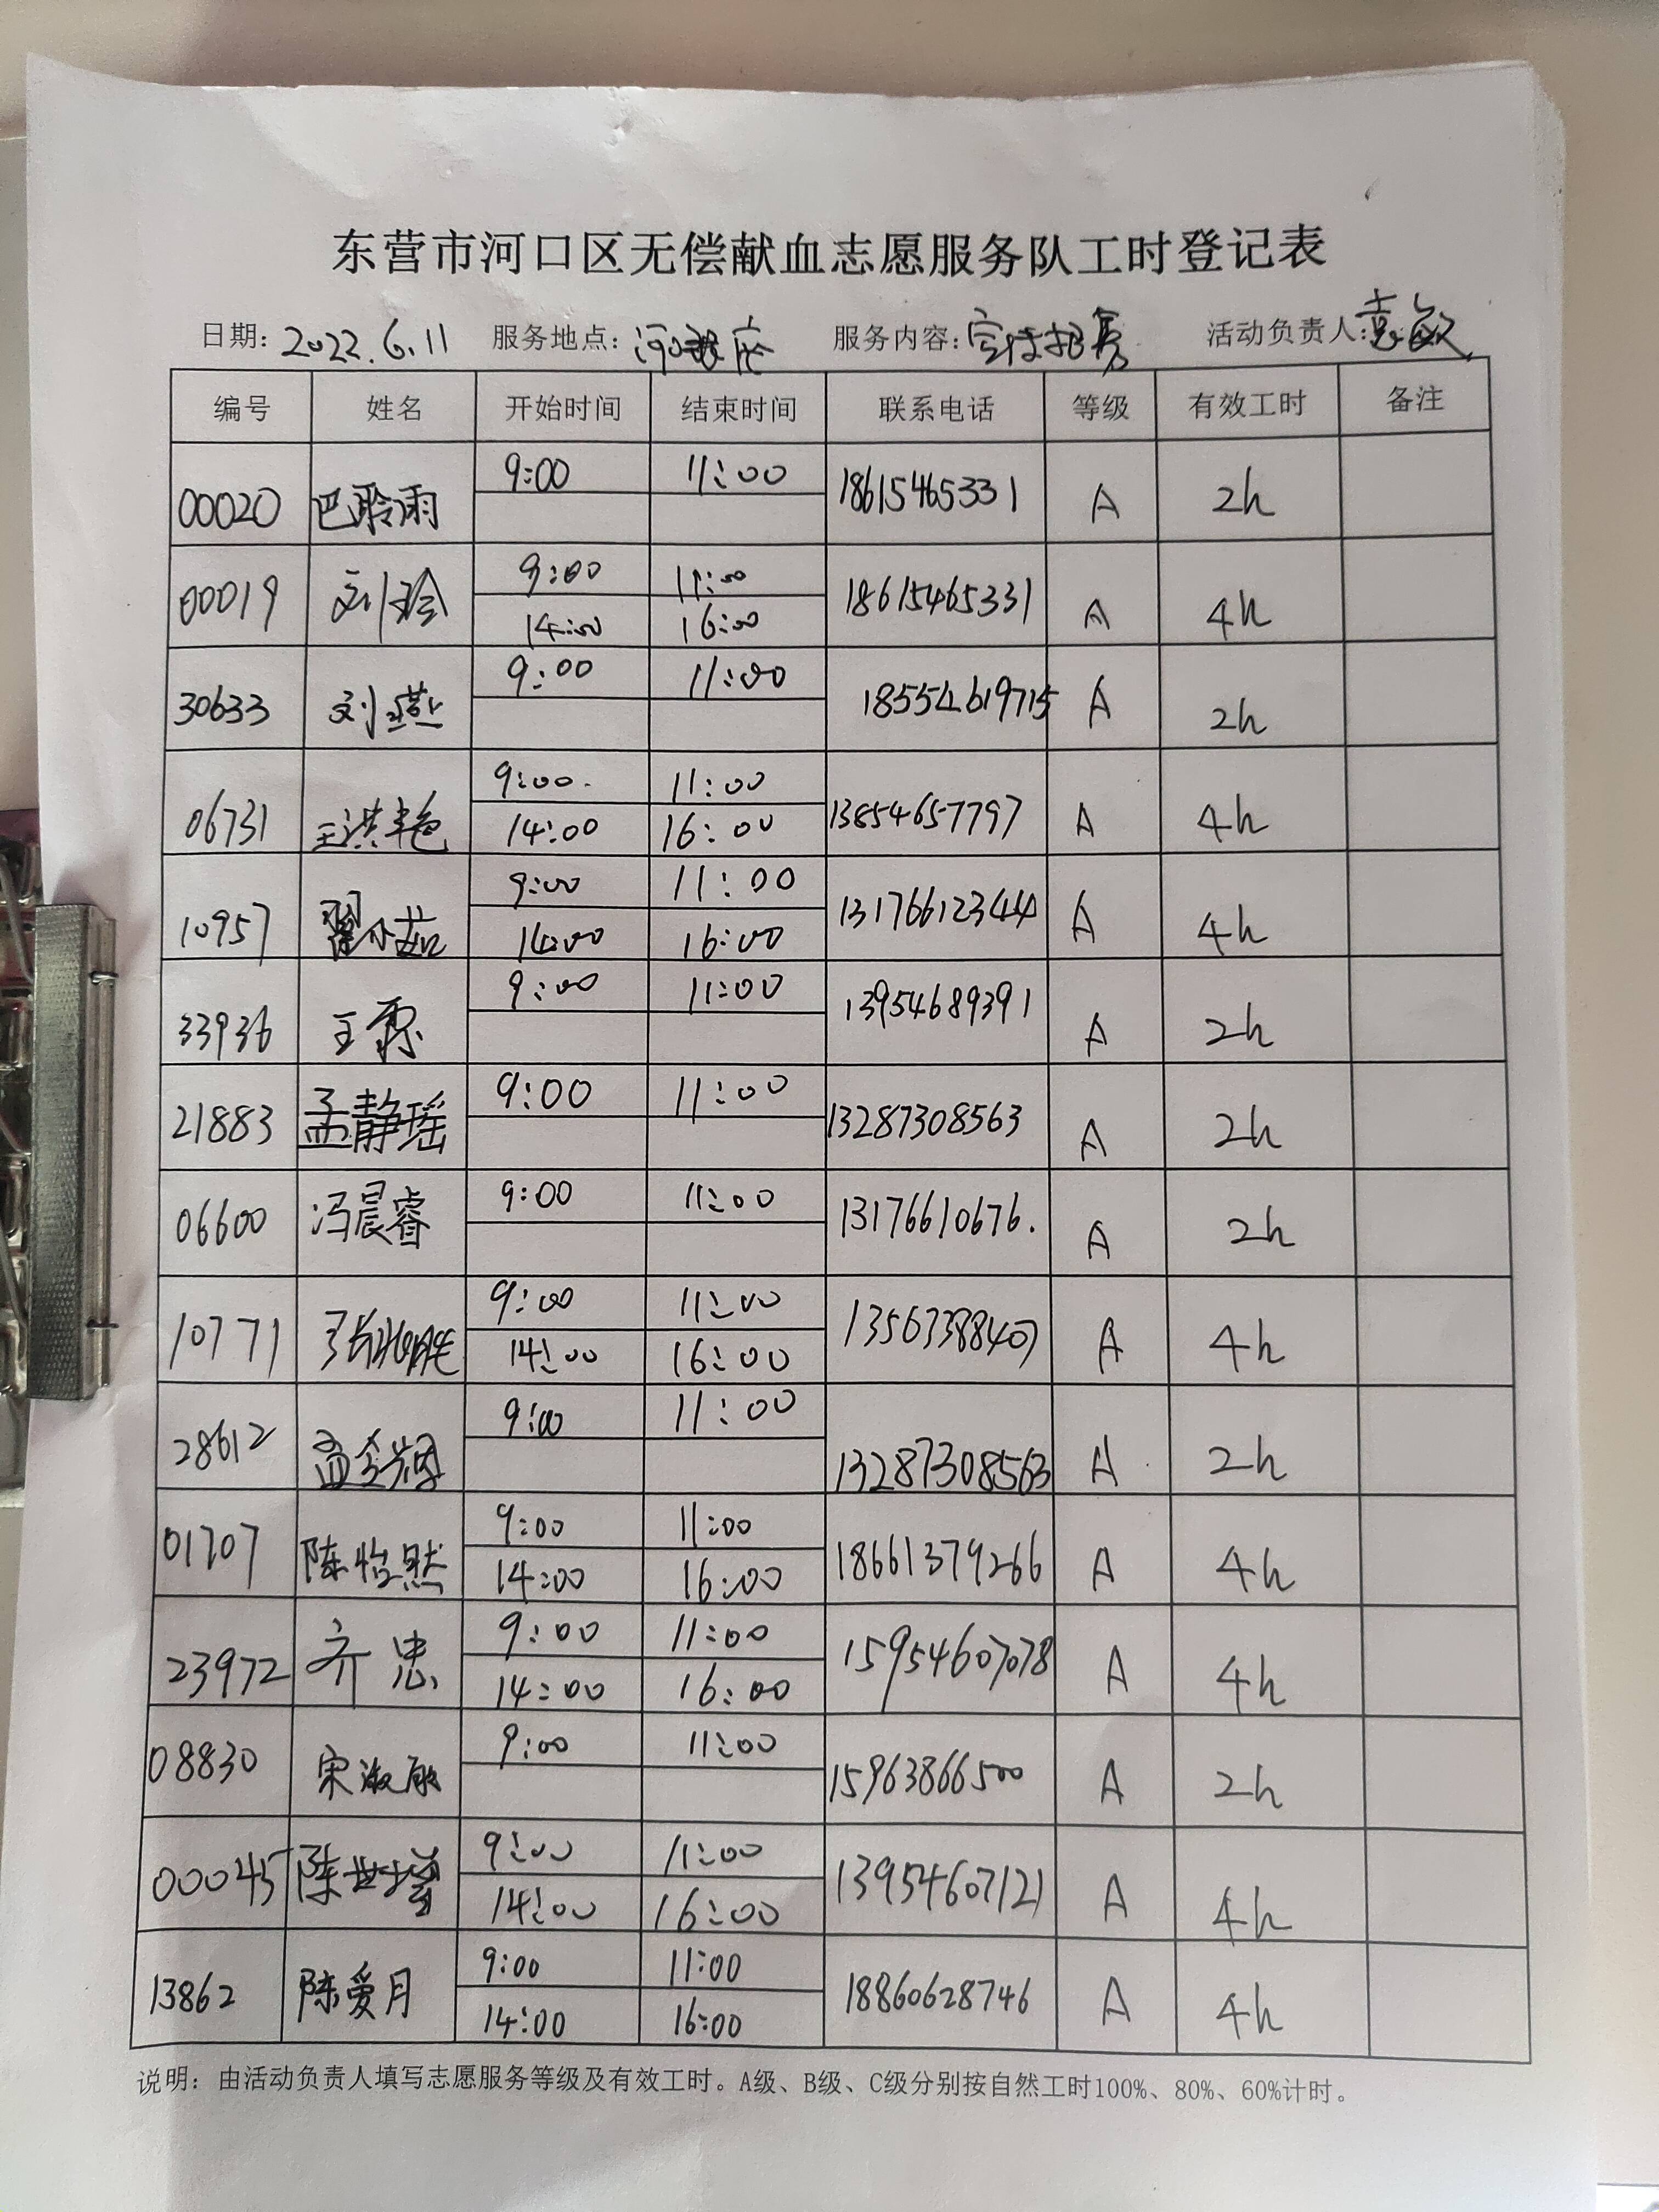 东营市河口区无偿献血志愿服务队工时登记表
日期: 2022.6.11 服务地点: 服务内容: 宣传招募 活动负责人: 袁敏
编号 姓名 开始时间 结束时间 联系电话 等级 有效工时 备注
00020 巴聆雨 9:00 11:00 18615465331 A 2h
00019 刘玲 9:00 11:00 18615465331 A 4h
14:00 16:00
30633 刘燕 9:00 11:00 18554619715 A 2h
06731 王洪艳 9:00 11:00 13854657797 A 4h
14:00 16:00
10957 翟小茹 9:00 11:00 13176612344 A 4h
14:00 16:00
33936 王霖 9:00 11:00 13954689391 A 2h
21883 孟静瑶 9:00 11:00 13287308563 A 2h
06600 冯晨睿 9:00 11:00 13176610676. A 2h
10771 9:00 11:00 13563388407 A 4h
14:00 16:00
28612 9:00 11:00 13287308563 A 2h
01707 陈怡然 9:00 11:00 18661379266 A 4h
14:00 16:00
23972 齐忠 9:00 11:00 15954607078 A 4h
14:00 16:00
08830 宋淑敏 9:00 11:00 15963866500 A 2h
00045 陈世 9:00 11:00 13954607121 A 4h
14:00 16:00
13862 陈爱月 9:00 11:00 18860628746 A 4h
14:00 16:00
说明：由活动负责人填写志愿服务等级及有效工时。A级、B级、C级分别按自然工时100%、80%、60%计时。